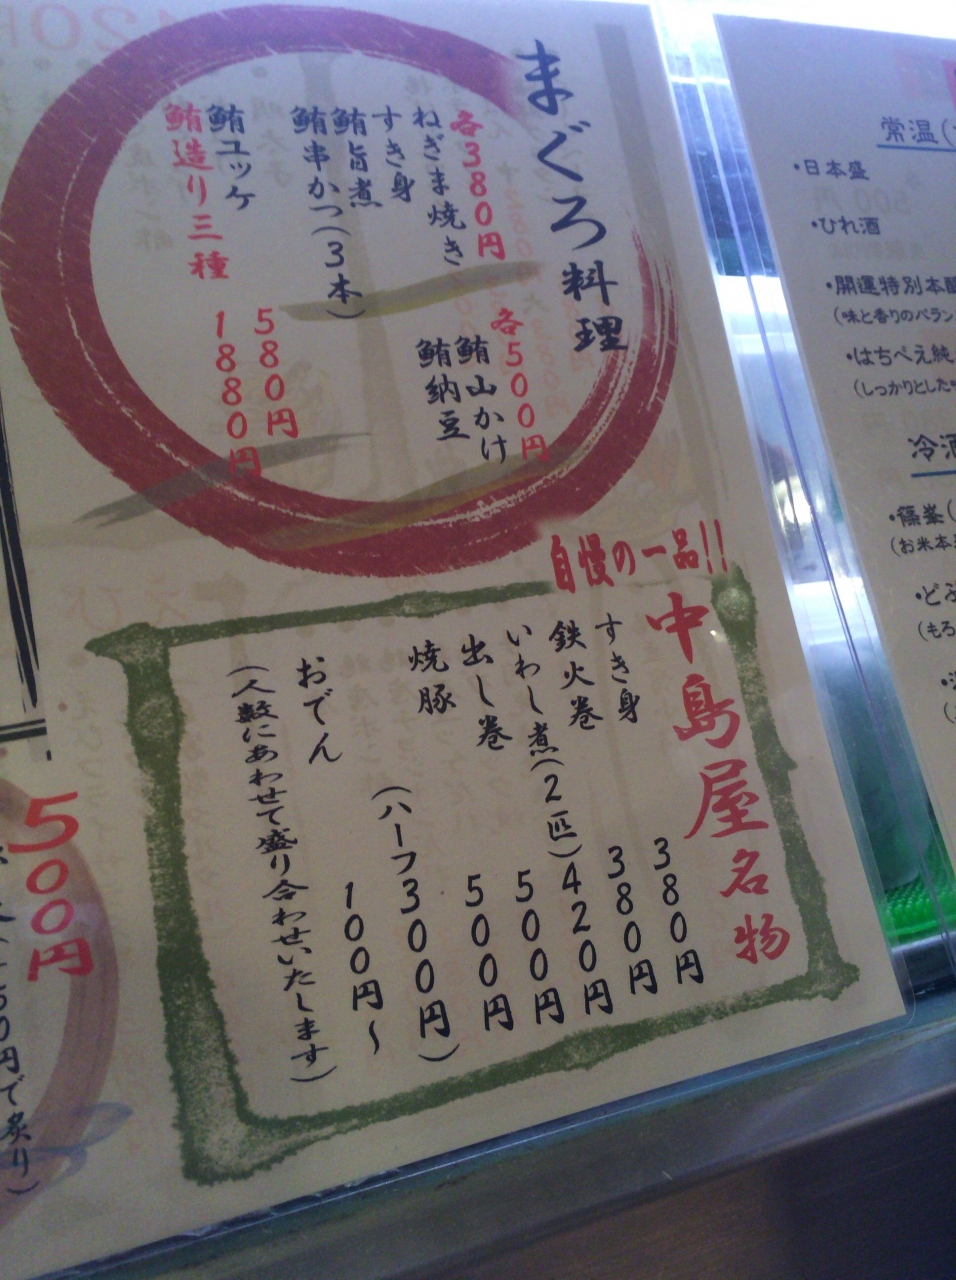 まぐろ料理
各380円
ねぎま焼き
すき身
鮪旨煮
鮪串かつ(3本)
各500円
鮪山かけ
鮪納豆
鮪ユッケ 580円
鮪造り三種 1880円
自慢の一品!!
中島屋名物
すき身 380円
鉄火巻 380円
いわし煮(2匹) 420円
出し巻 500円
焼豚 500円
(ハーフ300円)
おでん 100円～
(人数にあわせて盛り合わせいたします)
500円
50円で炙り)
常温(
・日本盛
・ひれ酒
・開運特別本
(味と香りのバラン
・はちべえ純
(しっかりとした
冷酒
・篠峯(
(お米本
・どぶ
(もろ